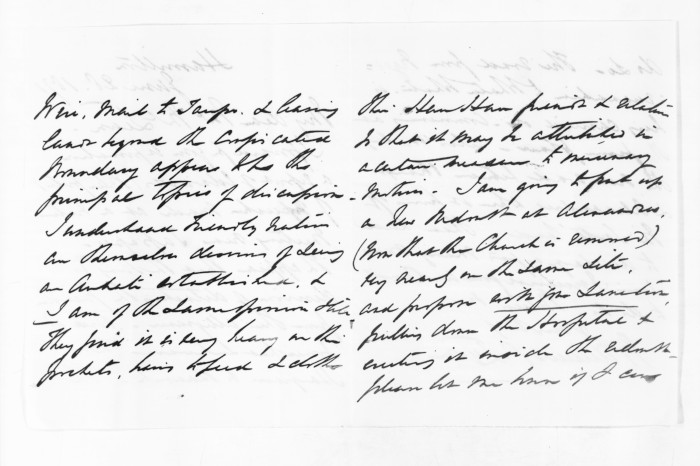 Weir, Mail to Taupo. & leasing
lands beyond the confiscated
boundary appears to be the
principal topics of discussion.
I understand Friendly Natives
are themselves desirous of seeing
an established, &
I am of the same opinion still
They find it is very heavy on their
pockets, having to feed & clothe
their Hau Hau friends & relations
so that it may be attributed in
a certain measure to mercenary
motives. I am going to put up
a New Redoubt at Alexandra,
(Now that the Church is removed)
very nearly on the same site,
and propose with your Sanction,
pulling down the Hospital &
erecting it inside the redoubt
please let me know if I can
Hamilton